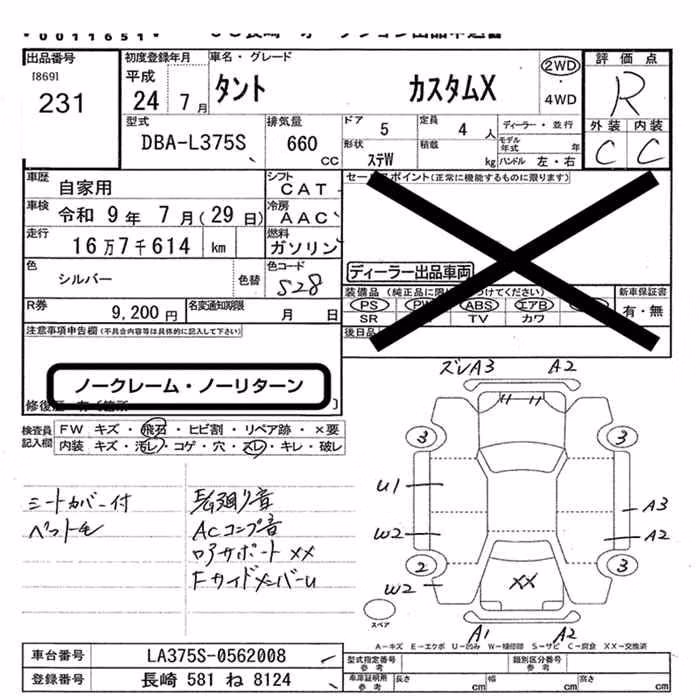 0011651
出品番号
18691
231
初度登録年月
平成
24 7月
車名・グレード
タント カスタムX
2WD
・
4WD
評価点
R
外装 内装
C C
型式
DBA-L375S
排気量
660
cc
ドア
5
定員
4 人
ディーラー・並行
形状
ステW
積載
kg
モデル年式 年
ハンドル 左・右
車歴
自家用
シフト
CAT
車検
令和 9年 7月(29日)
冷房
AAC
走行
16万7千614 km
燃料
ガソリン
色
シルバー
色替
色コード
S28
R券
9,200円
名変通知期限
月 日
セールスポイント(正常に機能するものに限ります)
ディーラー出品車両
装備品(純正品に限り つけてください)
PS PW ABS エアB
SR TV カワ
新車保証書
有・無
後日品
注意事項申告欄(不具合内容等は具体的に記入して下さい)
ノークレーム・ノーリターン
修復歴 有〔箇所 〕
検査員記入欄
FW キズ・飛石・ヒビ割・リペア跡・×要
内装 キズ・汚レ・コゲ・穴・スレ・キレ・破レ
シートカバー付
ペット毛
廻り音
ACコンプ音
ロアサポート××
FサイドメンバーU
ズレA3 A2
3 3
U1
A3
W2
A2
2 3
W2
××
A1 A2
スペア
A-キズ E-エクボ U-凹み W-補修跡 S-サビ C-腐食 XX-交換済
車台番号
LA375S-0562008
登録番号
長崎 581 ね 8124
型式指定番号
参考
類別区分番号
参考
車庫証明用
参考
長さ cm
幅 cm
高さ cm